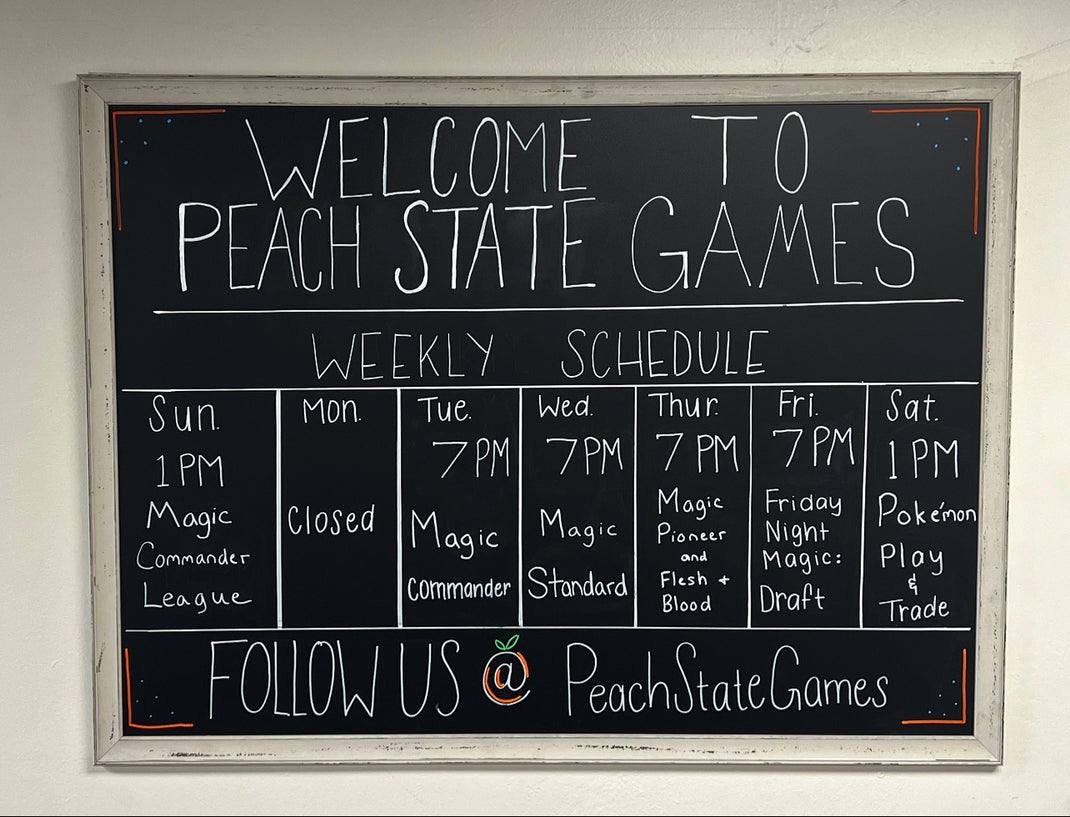 WELCOME TO
PEACH STATE GAMES
WEEKLY SCHEDULE
Sun.
1 PM
Magic
Commander
League
Mon.
Closed
Tue.
7 PM
Magic
Commander
Wed.
7 PM
Magic
Standard
Thur.
7 PM
Magic
Pioneer
and
Flesh +
Blood
Fri.
7 PM
Friday
Night
Magic:
Draft
Sat.
1 PM
Pokémon
Play
&
Trade
FOLLOW US @ PeachStateGames